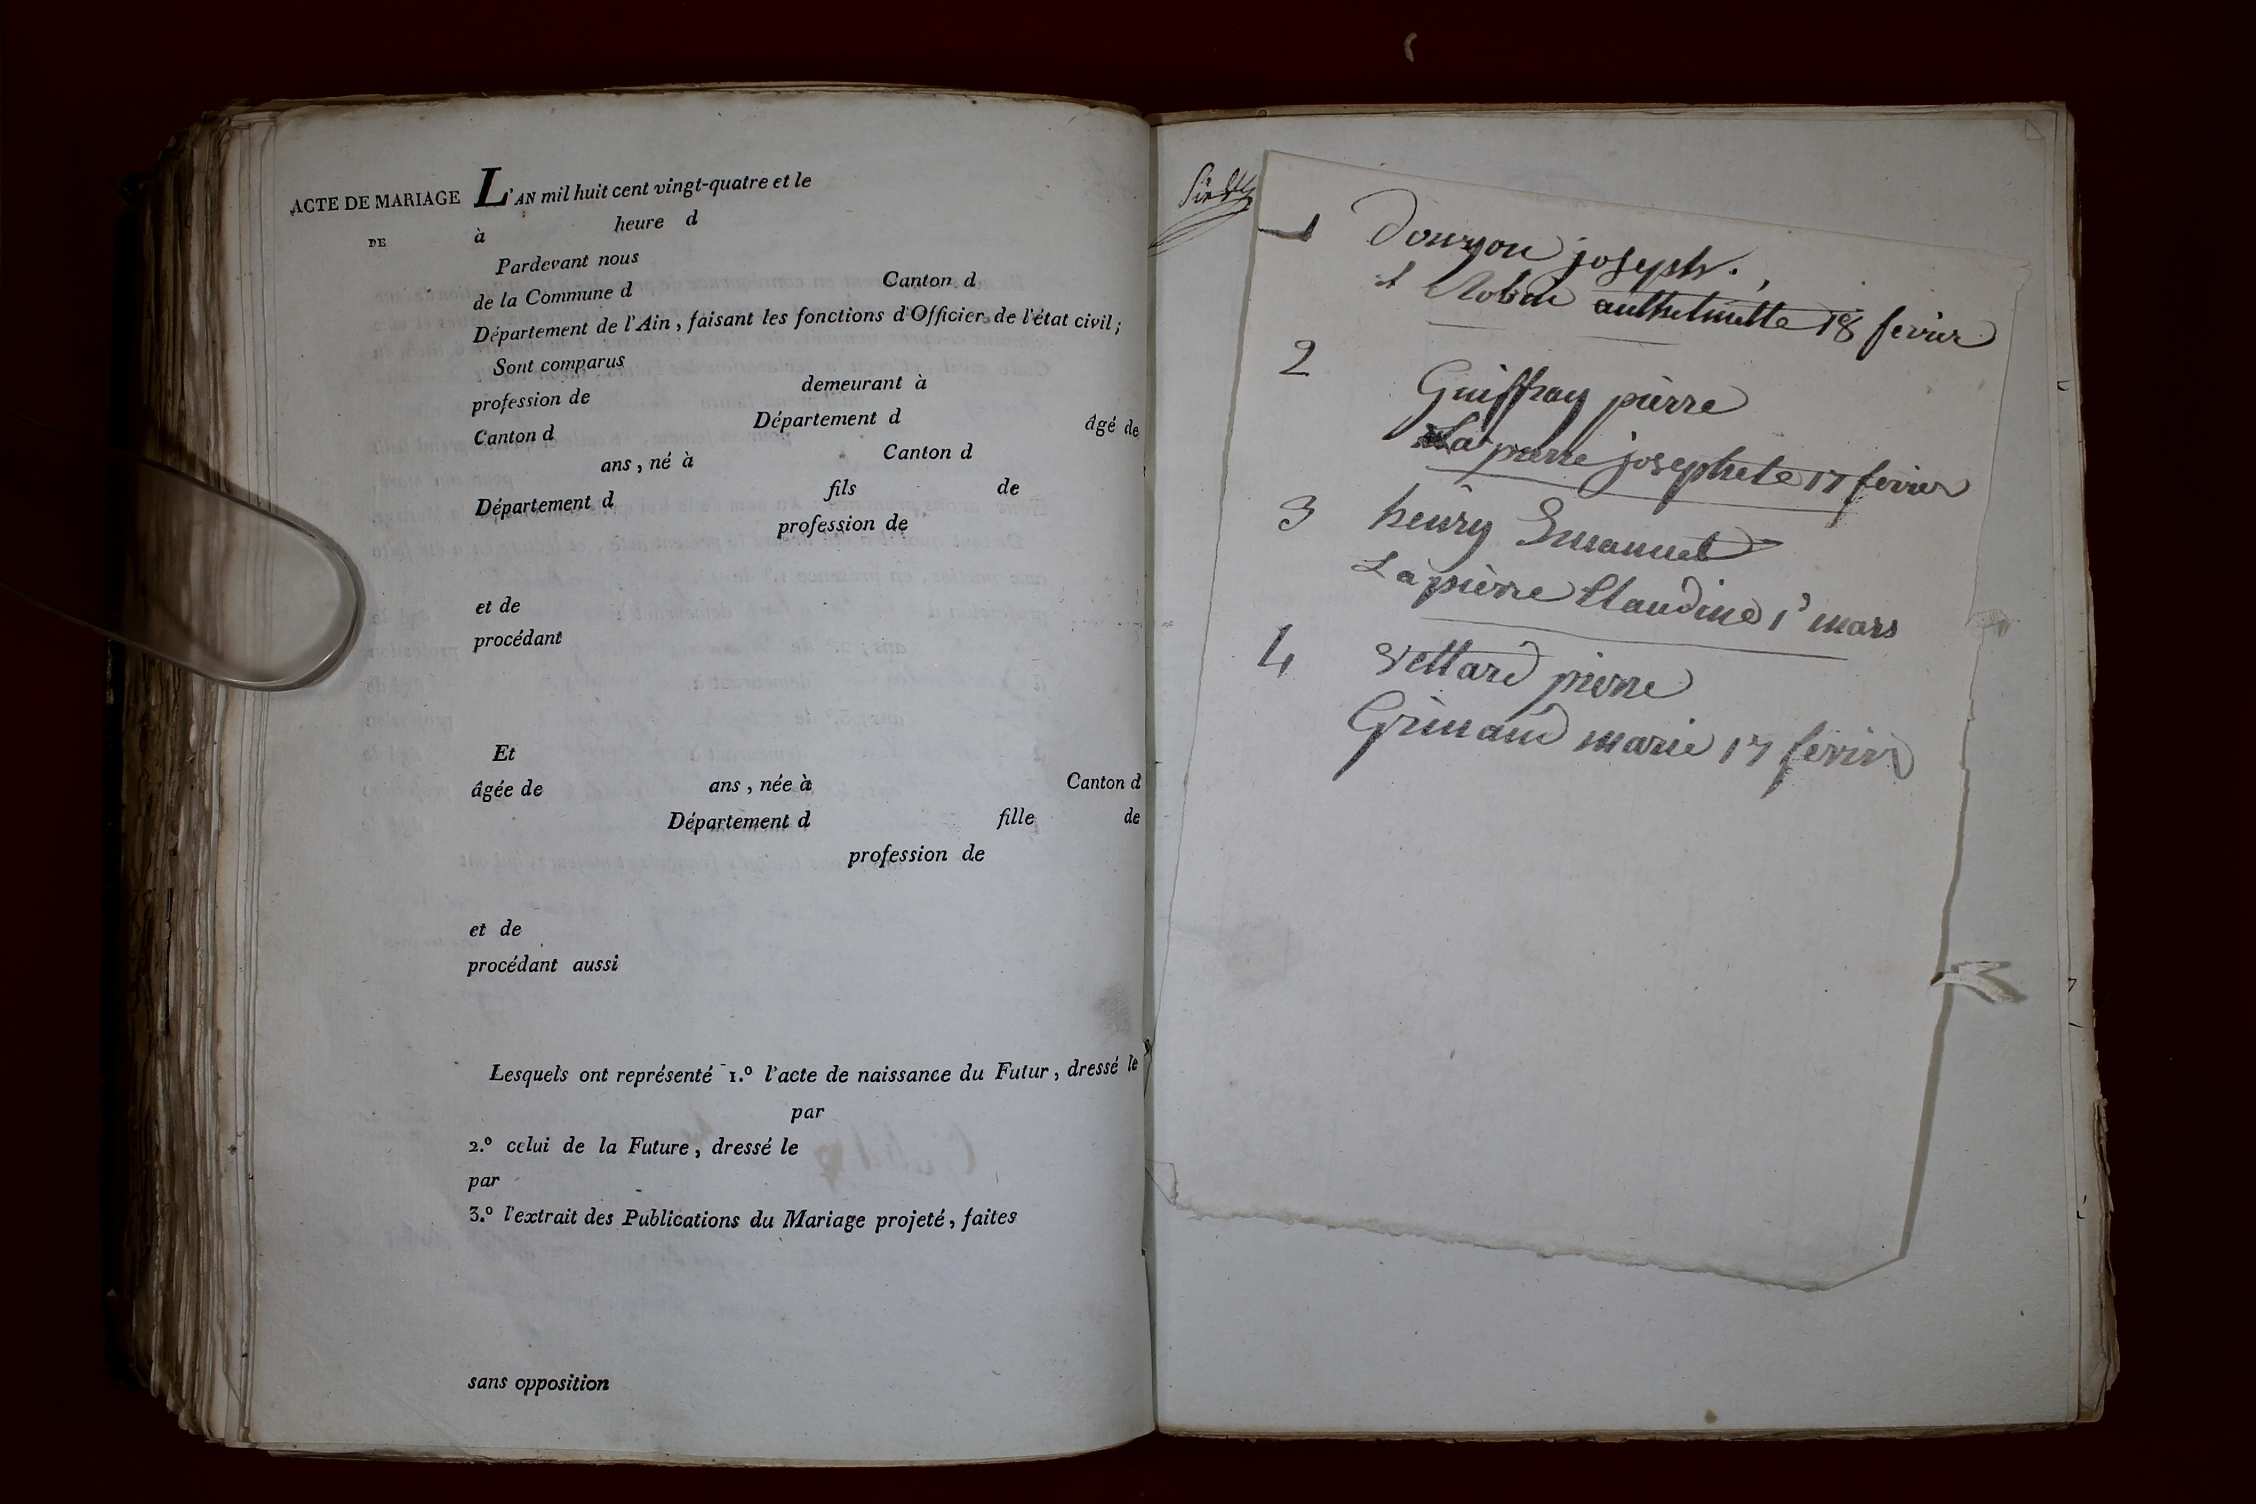 ACTE DE MARIAGE
DE
L'AN mil huit cent vingt-quatre et le
à heure d
Pardevant nous
de la Commune d Canton d
Département de l'Ain, faisant les fonctions d'Officier de l'état civil;
Sont comparus
profession de demeurant à
Canton d Département d âgé de
ans, né à Canton d
Département d fils de
profession de
et de
procédant
Et
âgée de ans, née à Canton d
Département d fille de
profession de
et de
procédant aussi
Lesquels ont représenté 1.º l'acte de naissance du Futur, dressé le
par
2.º celui de la Future, dressé le
par
3.º l'extrait des Publications du Mariage projeté, faites
sans opposition
1 joseph.
et Robin anthelmette 18 fevrier
2 Guiffray pierre
La pierre josephete 17 fevrier
3 henry Emanuel
La pierre Claudine 1r mars
4 Vettard pierre
Grimaud marie 17 fevrier